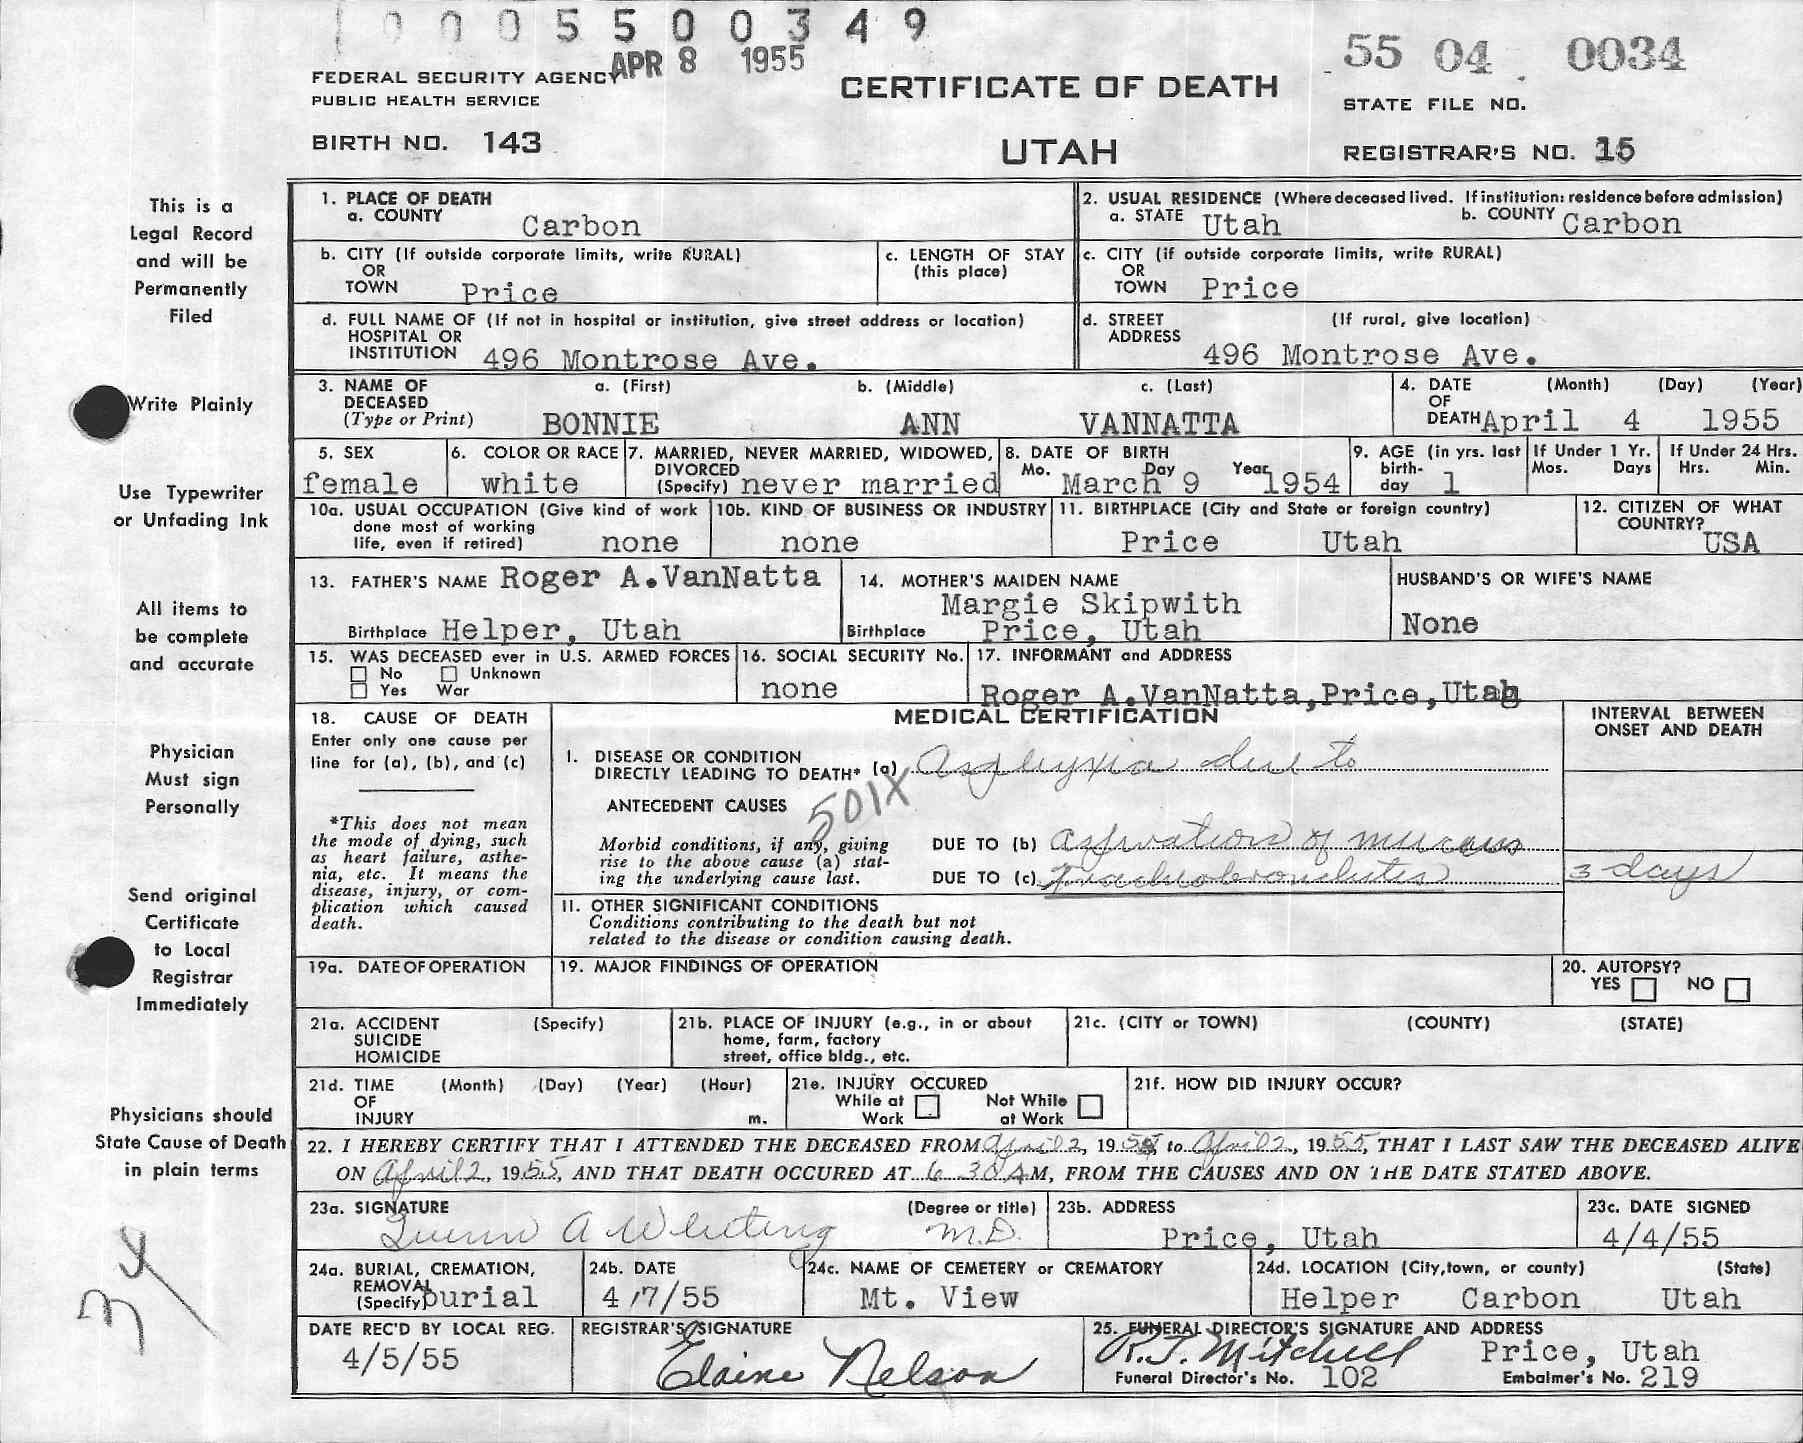 10005500349
APR 8 1955
55 04 0034
FEDERAL SECURITY AGENCY
PUBLIC HEALTH SERVICE
CERTIFICATE OF DEATH
STATE FILE NO.
BIRTH NO. 143
UTAH
REGISTRAR'S NO. 15
This is a
Legal Record
and will be
Permanently
Filed
Write Plainly
Use Typewriter
or Unfading Ink
All items to
be complete
and accurate
Physician
Must sign
Personally
Send original
Certificate
to Local
Registrar
Immediately
Physicians should
State Cause of Death
in plain terms
34
1. PLACE OF DEATH
a. COUNTY Carbon
2. USUAL RESIDENCE (Where deceased lived. If institution: residence before admission)
a. STATE Utah b. COUNTY Carbon
b. CITY (If outside corporate limits, write RURAL)
OR
TOWN Price
c. LENGTH OF STAY
(this place)
c. CITY (if outside corporate limits, write RURAL)
OR
TOWN Price
d. FULL NAME OF (If not in hospital or institution, give street address or location)
HOSPITAL OR
INSTITUTION 496 Montrose Ave.
d. STREET (If rural, give location)
ADDRESS
496 Montrose Ave.
3. NAME OF a. (First) b. (Middle) c. (Last)
DECEASED
(Type or Print) BONNIE ANN VANNATTA
4. DATE (Month) (Day) (Year)
OF
DEATH April 4 1955
5. SEX
female
6. COLOR OR RACE
white
7. MARRIED, NEVER MARRIED, WIDOWED,
DIVORCED
(Specify) never married
8. DATE OF BIRTH
Mo. Day Year
March 9 1954
9. AGE (in yrs. last
birth-
day 1
If Under 1 Yr.
Mos. Days
If Under 24 Hrs.
Hrs. Min.
10a. USUAL OCCUPATION (Give kind of work
done most of working
life, even if retired) none
10b. KIND OF BUSINESS OR INDUSTRY
none
11. BIRTHPLACE (City and State or foreign country)
Price Utah
12. CITIZEN OF WHAT
COUNTRY?
USA
13. FATHER'S NAME Roger A.VanNatta
Birthplace Helper, Utah
14. MOTHER'S MAIDEN NAME
Margie Skipwith
Birthplace Price, Utah
HUSBAND'S OR WIFE'S NAME
None
15. WAS DECEASED ever in U.S. ARMED FORCES
No Unknown
Yes War
16. SOCIAL SECURITY No.
none
17. INFORMANT and ADDRESS
Roger A.VanNatta,Price,Utah
18. CAUSE OF DEATH
Enter only one cause per
line for (a), (b), and (c)
*This does not mean
the mode of dying, such
as heart failure, asthe-
nia, etc. It means the
disease, injury, or com-
plication which caused
death.
MEDICAL CERTIFICATION
I. DISEASE OR CONDITION
DIRECTLY LEADING TO DEATH* (a) Asphyxia due to
501X
ANTECEDENT CAUSES
Morbid conditions, if any, giving
rise to the above cause (a) stat-
ing the underlying cause last.
DUE TO (b) aspiration of mucous
DUE TO (c) Tracheobronchitis
INTERVAL BETWEEN
ONSET AND DEATH
3 days
II. OTHER SIGNIFICANT CONDITIONS
Conditions contributing to the death but not
related to the disease or condition causing death.
19a. DATE OF OPERATION
19. MAJOR FINDINGS OF OPERATION
20. AUTOPSY?
YES NO
21a. ACCIDENT (Specify)
SUICIDE
HOMICIDE
21b. PLACE OF INJURY (e.g., in or about
home, farm, factory
street, office bldg., etc.
21c. (CITY or TOWN) (COUNTY) (STATE)
21d. TIME (Month) (Day) (Year) (Hour)
OF
INJURY m.
21e. INJURY OCCURED
While at Work
Not While at Work
21f. HOW DID INJURY OCCUR?
22. I HEREBY CERTIFY THAT I ATTENDED THE DECEASED FROM April 2, 1955, to April 2, 1955, THAT I LAST SAW THE DECEASED ALIVE
ON April 2, 1955, AND THAT DEATH OCCURED AT 6 30 A M, FROM THE CAUSES AND ON THE DATE STATED ABOVE.
23a. SIGNATURE (Degree or title)
Quinn A Whiting M.D.
23b. ADDRESS
Price, Utah
23c. DATE SIGNED
4/4/55
24a. BURIAL, CREMATION,
REMOVAL
(Specify) burial
24b. DATE
4/7/55
24c. NAME OF CEMETERY or CREMATORY
Mt. View
24d. LOCATION (City, town, or county) (State)
Helper Carbon Utah
DATE REC'D BY LOCAL REG.
4/5/55
REGISTRAR'S SIGNATURE
Elaine Nelson
25. FUNERAL DIRECTOR'S SIGNATURE AND ADDRESS
R.J. Mitchell Price, Utah
Funeral Director's No. 102 Embalmer's No. 219